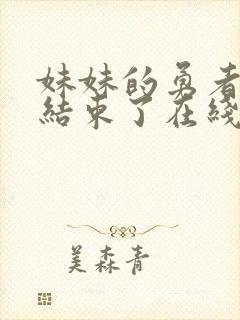 妹妹的勇者
結束了在綫
美森青